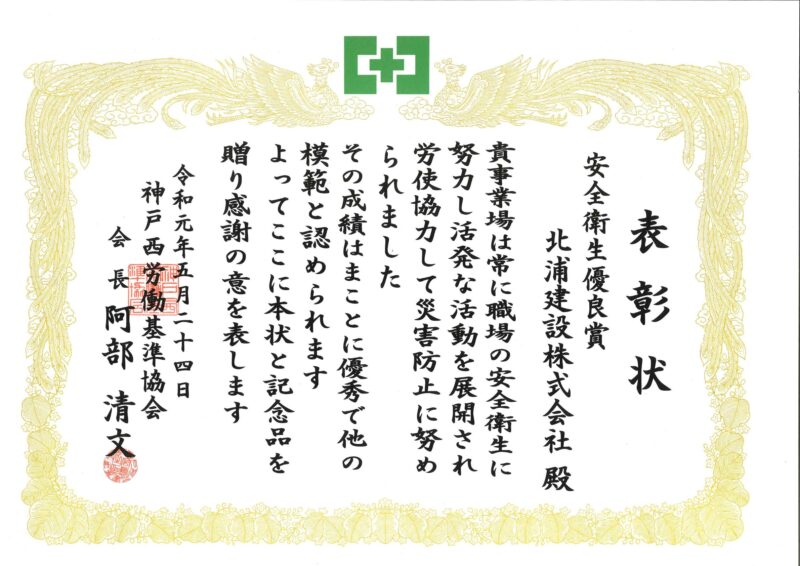 表彰状
安全衛生優良賞
北浦建設株式会社 殿
貴事業場は常に職場の安全衛生に
努力し活発な活動を展開され
労使協力して災害防止に努め
られました
その成績はまことに優秀で他の
模範と認められます
よってここに本状と記念品を
贈り感謝の意を表します
令和元年五月二十四日
神戸西労働基準協会
会長 阿部 清文